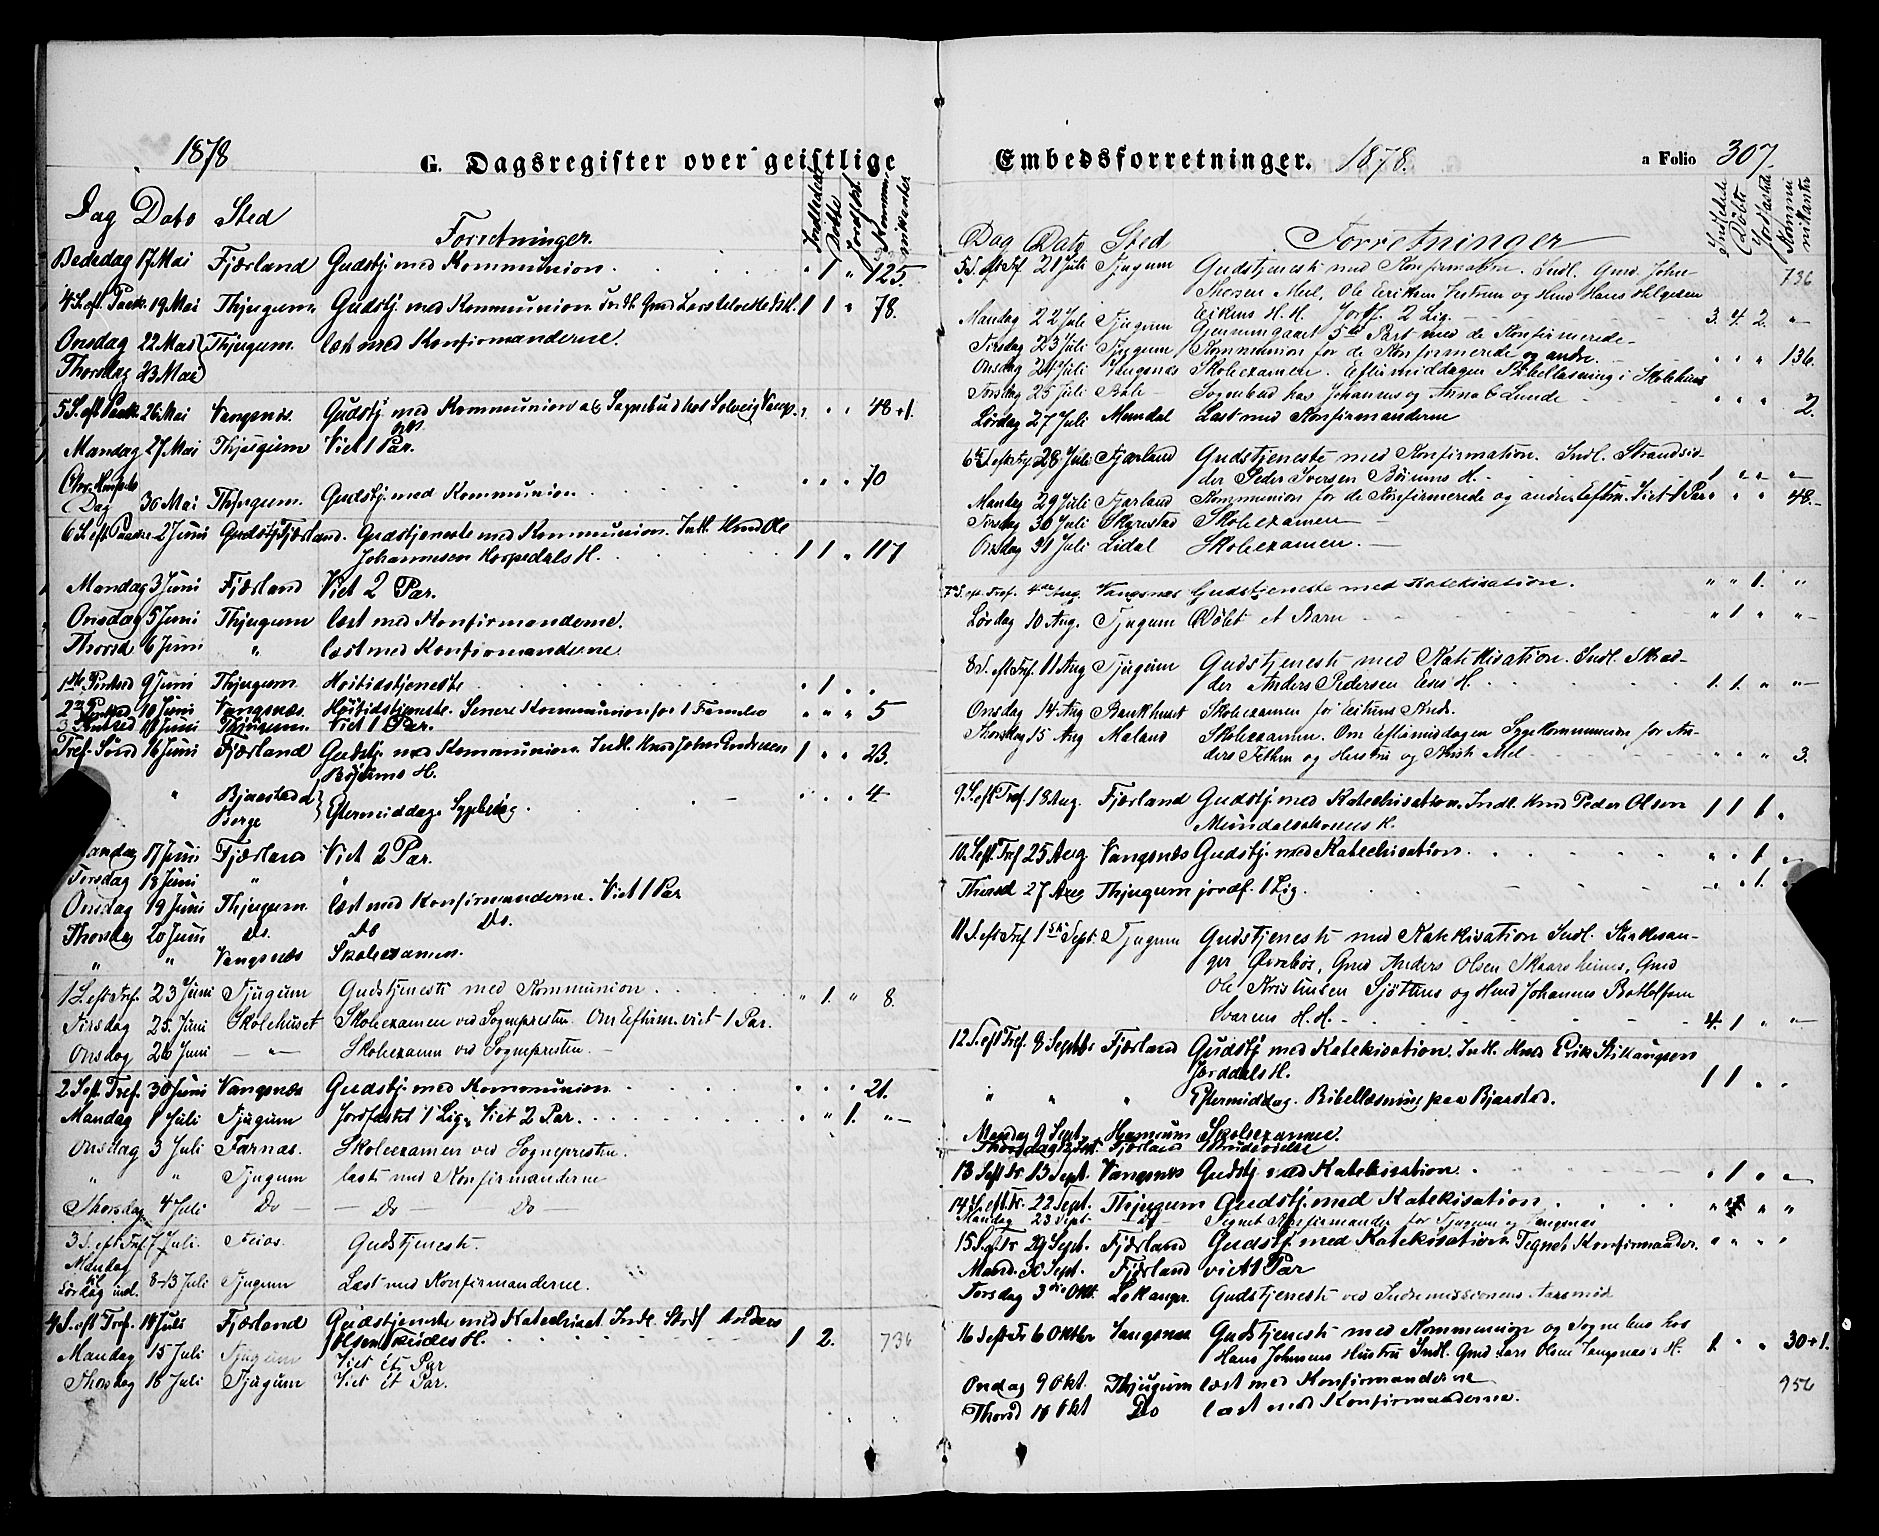 1878
G. Dagsregister over geistlige
Dag Dato Sted Forretninger. Indledede Døbte Jordfæst. Kommunikanter
Bededag 17 Mai Fjærland Gudstj. med Kommunion. " 1 " 125.
4 S. eft. Paaske 19 Mai Thjugum. Gudstj. med Kommunion. 1 1 " 78.
Onsdag 22 Mai Thjugum. læst med Konfirmanderne.
Thorsdag 23 Mai
5 S. eft. Paaske 26 Mai Vangsnæs. Gudstj. med Kommunion Sognebud hos Solveig " " 48+1.
Mandag 27 Mai Thjugum Viet 1 Par.
Chr. Himmelf. Dag 30 Mai Thjugum. Gudstj. med Kommunion " " " 70
6 S. eft Paaske 2 Juni Fjærland. Gudstjeneste med Kommunion. Indl. Hmd Ole
Johannesen Horpedals H. 1 1 " 117
Mandag 3 Juni Fjærland Viet 2 Par.
Onsdag 5 Juni Thjugum læst med Konfirmanderne.
Thorsd 6 Juni " læst med Konfirmanderne
1ste Pintsed 9 Juni Thjugum. Høitidstjeneste " 1 " "
2den Pintsed 10 Juni Vangsnæs. Høitidstjeneste. Senere Kommunion for 1 Familie " " " 5
3 Pintsed 11 Juni Thjugum. Viet 1 Par.
Tref. Sønd 16 Juni Fjærland Gudstj. med Kommunion. Indl. Hmd John Andersen 1 " " 23.
Bøjums H.
" Bjaastad & Berge Eftermiddag. Sygebesøg. " " " 4
Mandag 17 Juni Fjærland Viet 2 Par.
Tirsdag 18 Juni " "
Onsdag 19 Juni Thjugum. læst med Konfirmanderne. Viet 1 Par
Thorsdag 20 Juni Do. Do Do.
" " Vangsnæs Skoleexamen.
1 S. eft Tref. 23 Juni Tjugum Gudstjeneste med Kommunion " 1. " 8.
Tirsdag 25 Juni Skolehuset Skoleexamen ved Sognepresten. Om Efterm. viet 1 Par.
Onsdag 26 Juni — " — Skoleexamen ved Sognepresten. —
2 S. eft Tref. 30 Juni Vangsnæs Gudstj. med Kommunion " " " 21.
Mandag 1 Juli Tjugum Jordfæstet 1 Lig. Viet 2 Par. " " 1. "
Onsdag 3 Juli Farnæs. Skoleexamen ved Sognepresten.
" " Tjugum læst med Konfirmanderne
Thorsdag 4 Juli Do — Do — Do —
3 S. eft Tref 7 Juli. Feios. Gudstjeneste.
Mandag til Lørdag incl. 8-13 Juli Tjugum Læst med Konfirmanderne.
4 S. eft Tref. 14 Juli Fjærland Gudstjeneste med Katechisat. Indl. Strds Anders
Olsen H. 1 2. 736
Mandag 15 Juli Tjugum Viet ét Par
Thorsdag 18 Juli Tjugum Viet ét Par.
Embedsforretninger. 1878. a Folio 307.
Dag Dato Sted Forretninger Indledede Døbte Jordfæstede Kommunikanter
5 S. eft Tref 21 Juli Tjugum Gudstjeneste med Konfirmation. Indl. Gmd. John 736
Thorsen Mel, Ole Eriksen og Hmd Hans Helgesen
Eikens H. H. Jordf. 2 Lig. 3. 4. 2. "
Mandag 22 Juli Tjugum Gjennemgaaet 5te Part med de Konfirmerede
Tirsdag 23 Juli Tjugum Kommunion for de Konfirmerede og andre. " " " 136
Onsdag 24 Juli Vangsnæs Skoleexamen. Eftermiddagen Bibellæsning i Skolehuset
Torsdag 25 Juli Bale Sognebud hos Johannes og Anna Lunde " " " 2.
Lørdag 27 Juli Mundal Læst med Konfirmanderne
6te S. eft Tref 28 Juli Fjærland Gudstjeneste med Konfirmation. Indl. Strandsid-
der Peder Iversen Bøiums H. 1. " " "
Mandag 29 Juli Fjærland Kommunion for de Konfirmerede og andre Efterm. Viet 1 Par " " " 48.
Tirsdag 30 Juli Skarestad Skoleexamen —
Onsdag 31 Juli Lidal Skoleexamen. —
7de S. eft. Tref. 4de Aug. Vangsnæs Gudstjeneste med Katekisation. " " 1. "
Lørdag 10 Aug. Tjugum Døbt et Barn " 1 " "
8 S. eft Tref. 11 Aug Tjugum Gudstjeneste med Katekisation. Indl.
Anders Pedersen Eses H. 1. 1. " "
Onsdag 14 Aug Skoleexamen for
Thorsdag 15 Aug Maland Skoleexamen. Om Eftermiddagen Sygekommunion for An-
ders og Hustru og Mel " " " 3.
9 S. eft Tref. 18 Aug. Fjærland Gudstj. med Katechisation. Indl. Hmd Peder Olsen 1 1 1. "
10 S. eft Tref 25 Aug. Vangsnæs Gudstj. med Katechisation. " " 1 "
27 Aug Thjugum jordf. 1 Lig. " " 1. "
11 S. eft Tref 1ste Sept. Tjugum Gudstjeneste med Katekisation Indl. Kirkesan-
ger Øvrebøs, Gmd Anders Olsen Skaarsheims, Gmd
Ole Kristensen Sjøtuns og Hmd Johannes Botholfsen
Svarens H. H. 4. 1 " "
12 S. eft Tref. 8 Septbr Fjærland Gudstj med Katekisation. Indl. Hmd Erik
Jorddals H. 1 1 " "
" " " Eftermiddag. Bibellæsning paa Bjaastad.
Mandag 9 Sept. Hamrum Skoleexamen.
Thorsdag 12 Sept. Fjærland
13 S. eft Tr. 15 Sept. Vangsnæs Gudstj med Katekisation " 1 " "
14 S. eft Tr. 22 Sept. Thjugum Gudstj. med Katekisation " 4 " "
Mandag 23 Sept Do Tegnet Konfirmander for Tjugum og Vangsnæs
15 S. eft Tr 29 Sept. Fjærland Gudstj med Katekisation Tegnet Konfirmander. " " " "
Mand. 30 Sept. Fjærland viet 1 Par
Torsdag 3die Okt. Lekanger Gudstjeneste ved Indremissionens Aarsmøde
16 S. eft Tr 6 Oktbr Vangsnæs Gudstjeneste med Kommunion og Sognebud hos
Hans Johnsens Hustru Indl. Gmd Lars Olsen Vangsnæs's H. 1. " " 30+1.
Onsdag 9 Okt. Thjugum læst med Konfirmanderne 956
Thorsd 10 Okt Do læst med Konfirmanderne.